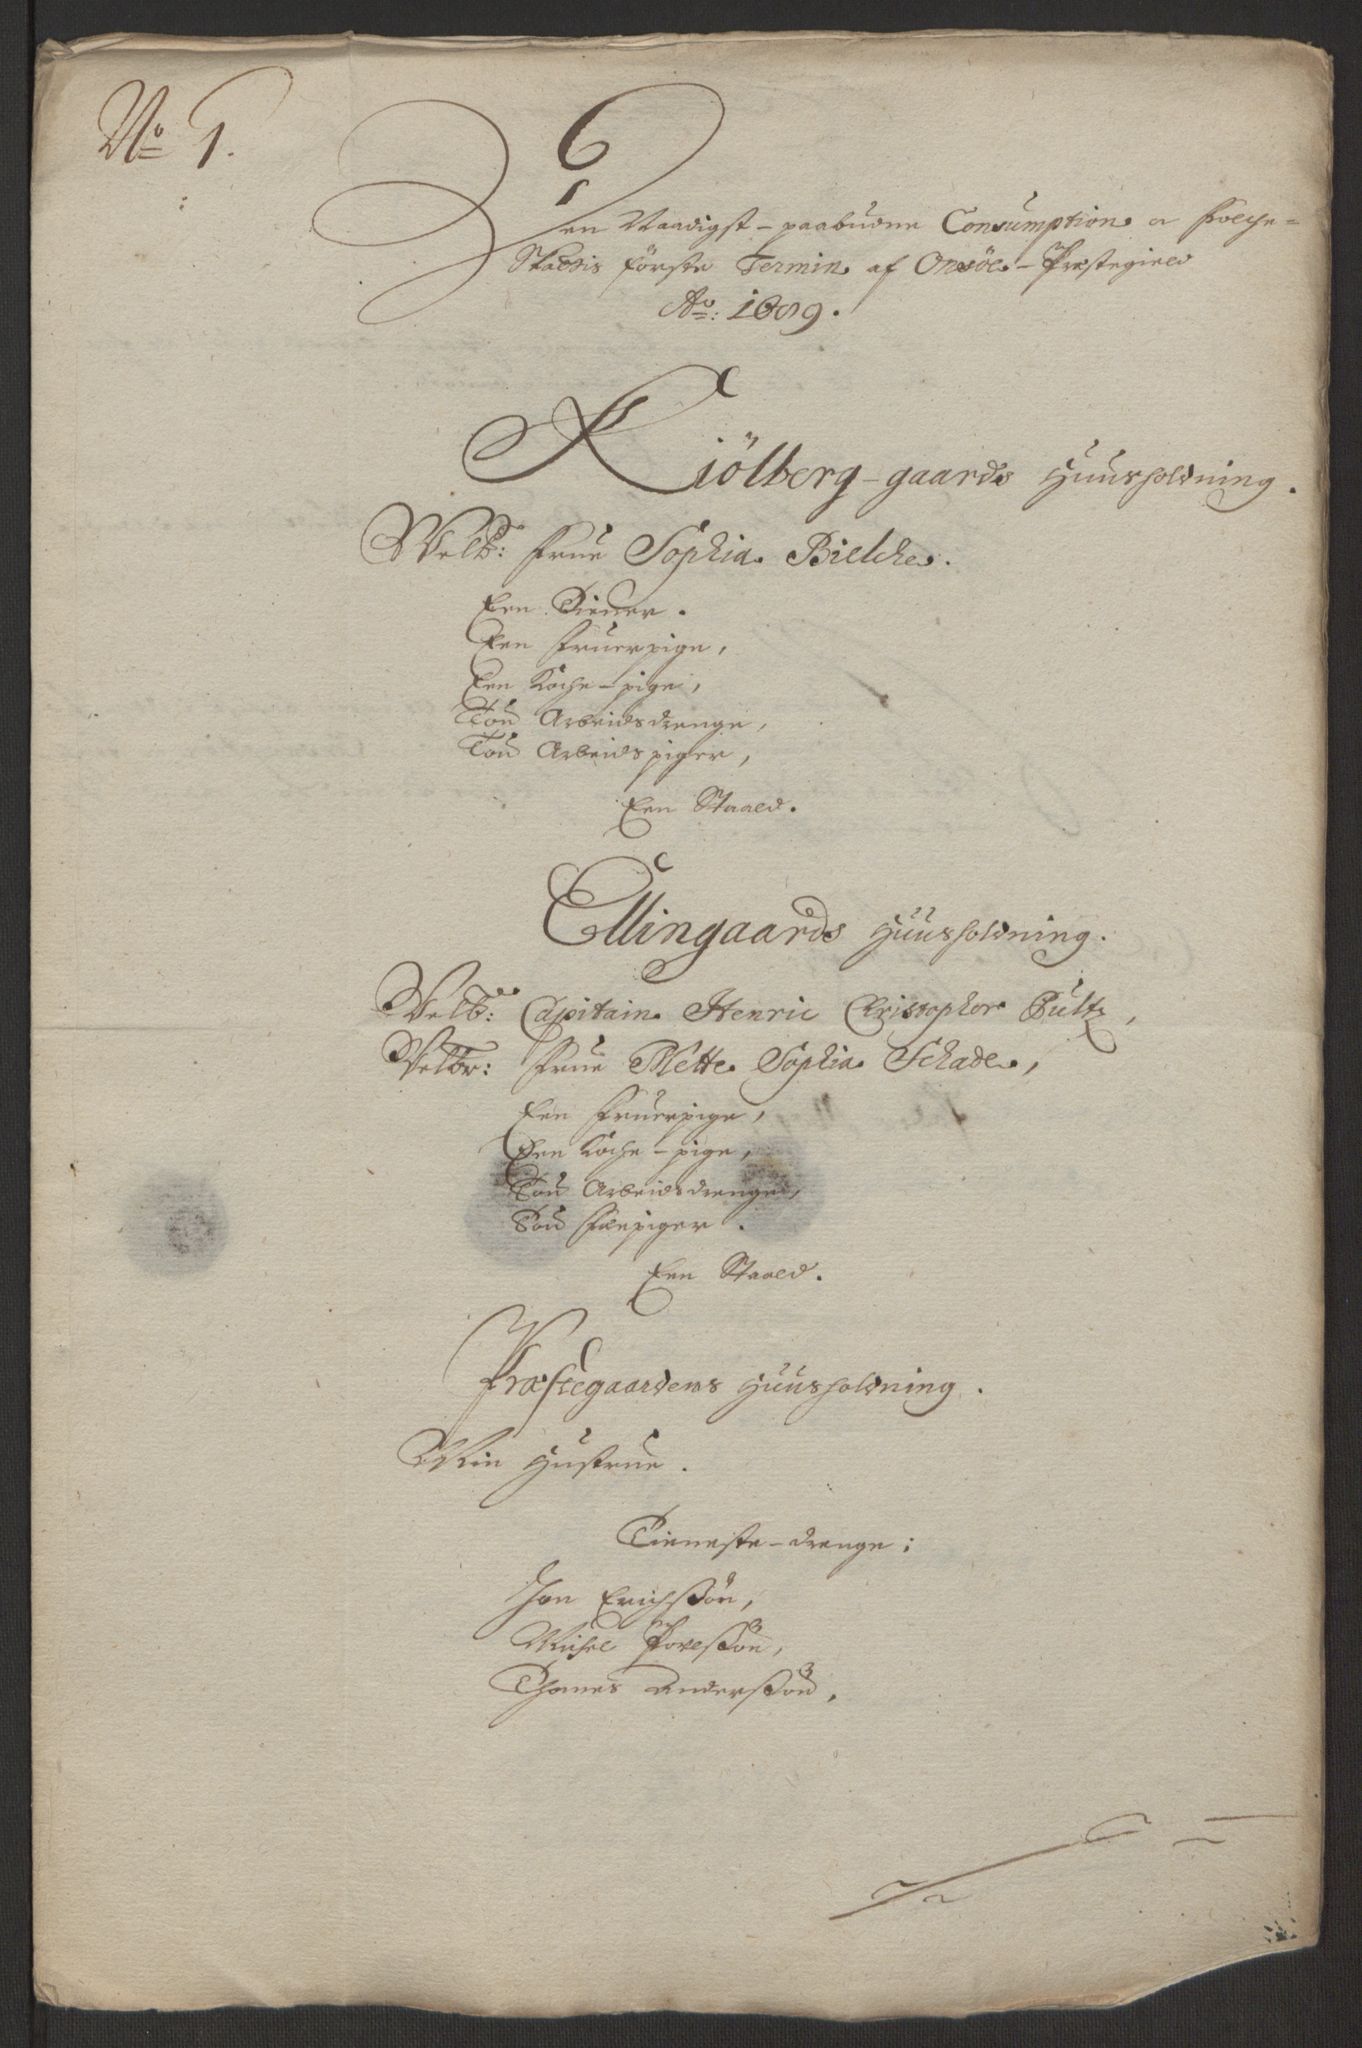 No 1.
Den Naadigst-paabudne Consumption oc Folche=
Skattis förste Termin af Onsöe-Præstegield
Ao: 1689.
Kiölberg-gaards Huusholdning.
Velb: Frue Sophia Bielche.
Een Diener.
Een Fruerpige,
Een Koche-pige,
Tou Arbeidsdrenge,
Tou Arbeidspiger,
Een Staald.
Ellingaards Huusholdning.
Velb: Capitain Henric Christopher Bultz,
Velbr: Frue Mette Sophia Schade,
Een Fruerpige,
Een Koche-pige,
Tou Arbeidsdrenge,
Tou Fæepiger.
Een Staald.
Præstegaardens Huusholdning.
Min Hustrue.
Tieneste-drenge:
Jon Erichssön,
Michel Povelssön,
Thomes Anderssön,